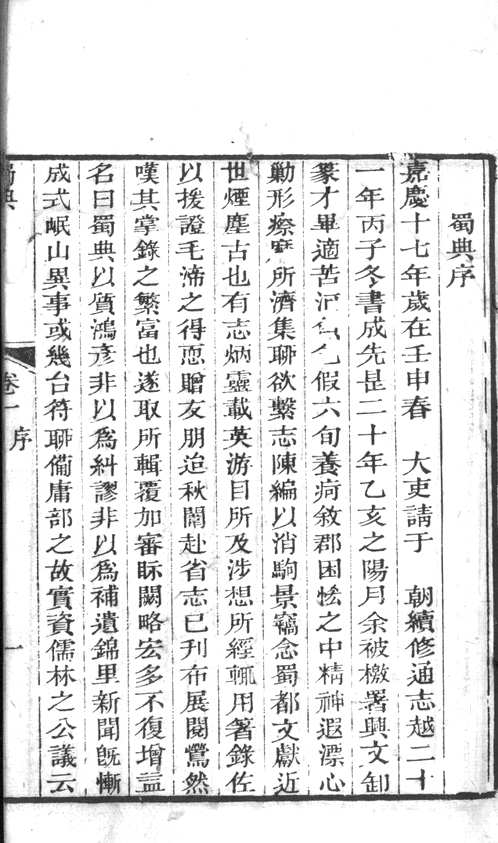 蜀典序
嘉慶十七年歲在壬申春 大吏請于 朝續修通志越二十
一年丙子冬書成先是二十年乙亥之陽月余被檄署興文卸
篆才畢適苦河乞假六旬養疴敘郡困惙之中精神遐漂心
勦形瘵 所濟集聊欲繫志陳編以消駒景竊念蜀都文獻近
世煙塵古也有志炳靈載英游目所及涉想所經輒用箸錄佐
以援證毛渧之得恧贈友朋迨秋闈赴省志已刊布展閱驚然
嘆其掌錄之繁富也遂取所輯覆加審眎闕略宏多不復增益
名曰蜀典以質鴻彥非以爲糾謬非以爲補遺錦里新聞旣慚
成式岷山異事或幾台符聊備庸部之故實資儒林之公議云
蜀典
卷一
序
一